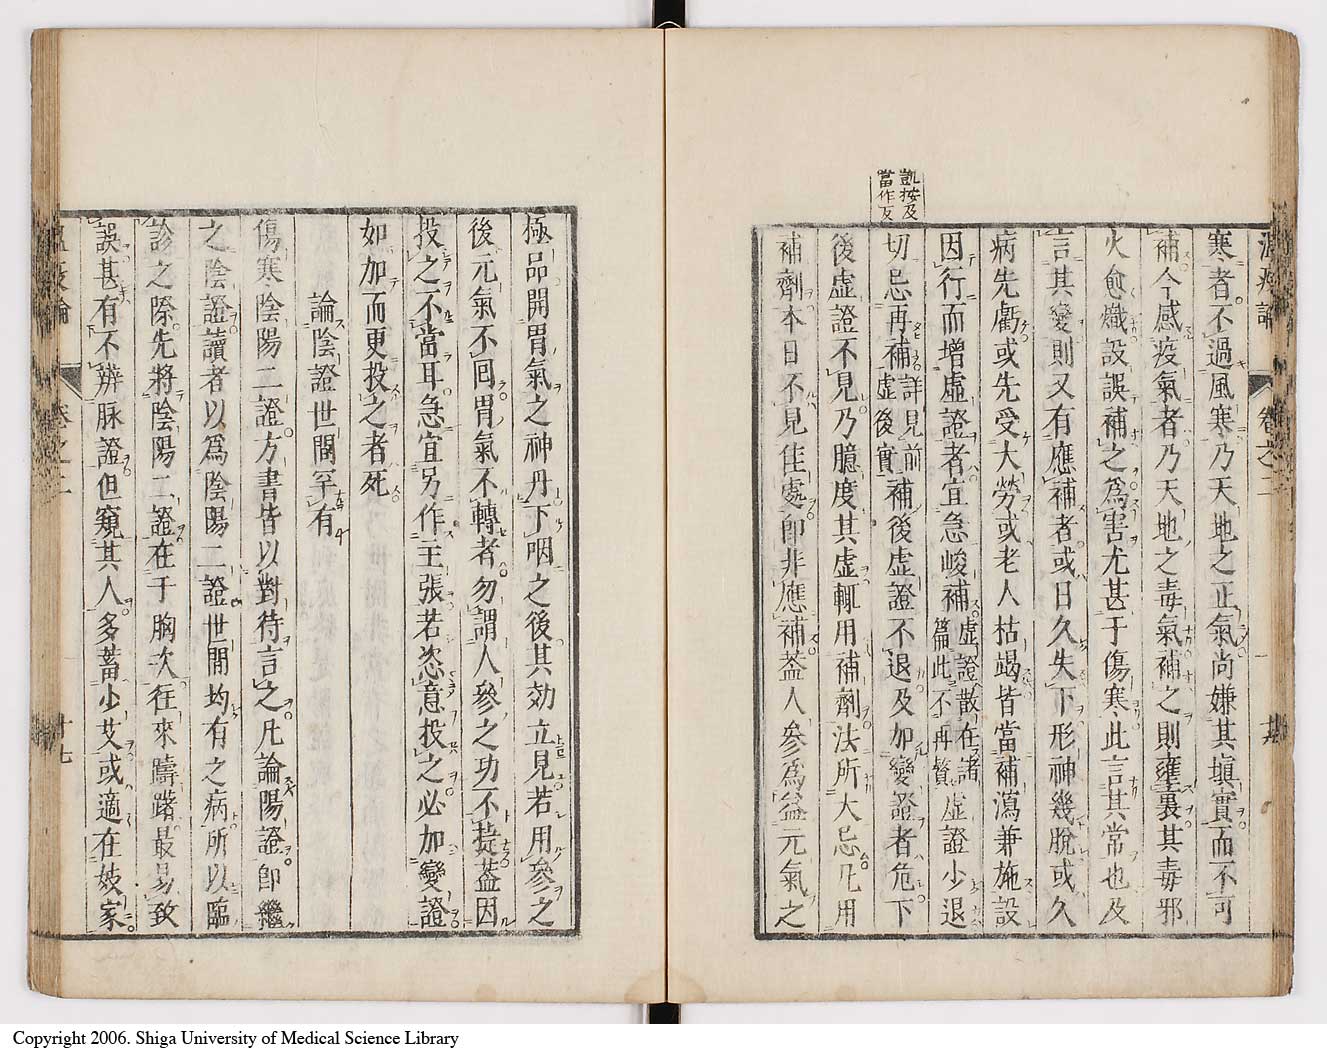 凱按及
當作反
寒者不過風寒乃天地之正氣尚嫌其塡實而不可
補今感疫氣者乃天地之毒氣補之則壅裏其毒邪
火愈熾設誤補之爲害尤甚于傷寒此言其常也及
言其變則又有應補者或日久失下形神幾脫或久
病先虧或先受大勞或老人枯竭皆當補瀉兼施設
因行而增虛證者宜急峻補虛證散在諸篇此不再贅虛證少退
切忌再補詳見前虛後實補後虛證不退及加變證者危下
後虛證不見乃臆度其虛輒用補劑法所大忌凡用
補劑本日不見佳處卽非應補葢人參爲益元氣之
極品開胃氣之神丹下咽之後其効立見若用參之
後元氣不回胃氣不轉者勿謂人參之功不捷葢因
投之不當耳急宜另作主張若恣意投之必加變證
如加而更投之者死
論陰證世間罕有
傷寒陰陽二證方書皆以對待言之凡論陽證卽繼
之陰證讀者以爲陰陽二證世間均有之病所以臨
診之際先將陰陽二證在于胸次往來躊躇最易致
誤甚有不辨脉證但窺其人多蓄少艾或適在妓家
卷之二
十七
Copyright 2006. Shiga University of Medical Science Library